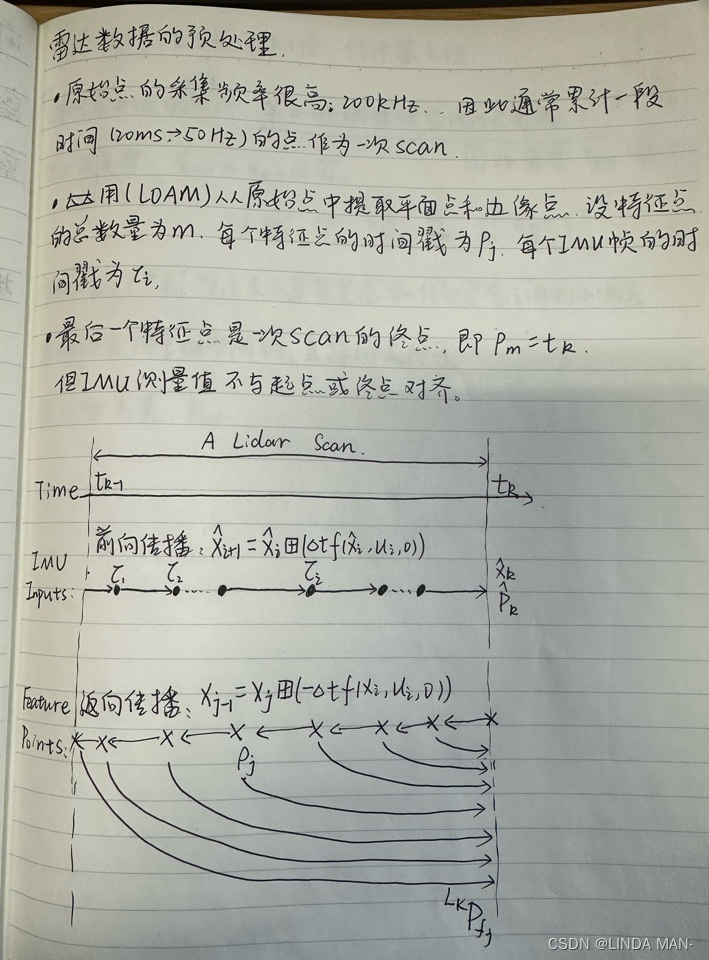 雷达数据的预处理.
·原始点的采集频率很高:200kHz. 因此通常累计一段
时间(20ms→50Hz)的点作为一次scan.
·用(LOAM)从原始点中提取平面点和边缘点. 设特征点
的总数量为m. 每个特征点的时间戳为ρj. 每个IMU帧的时
间戳为τi,
·最后一个特征点是一次scan的终点, 即ρm=tk.
但IMU测量值不与起点或终点对齐。
A Lidar Scan.
Time
tk-1
tk
前向传播: x̂i+1=x̂i⊞(Δtf(x̂i,ui,0))
IMU
Inputs:
τ1 τ2 ... τi ...
x̂k
P̂k
返向传播: xj-1=xj⊞(-Δtf(xi,ui,0))
Feature
Points:
ρj
LkPfj
CSDN @LINDA MAN-